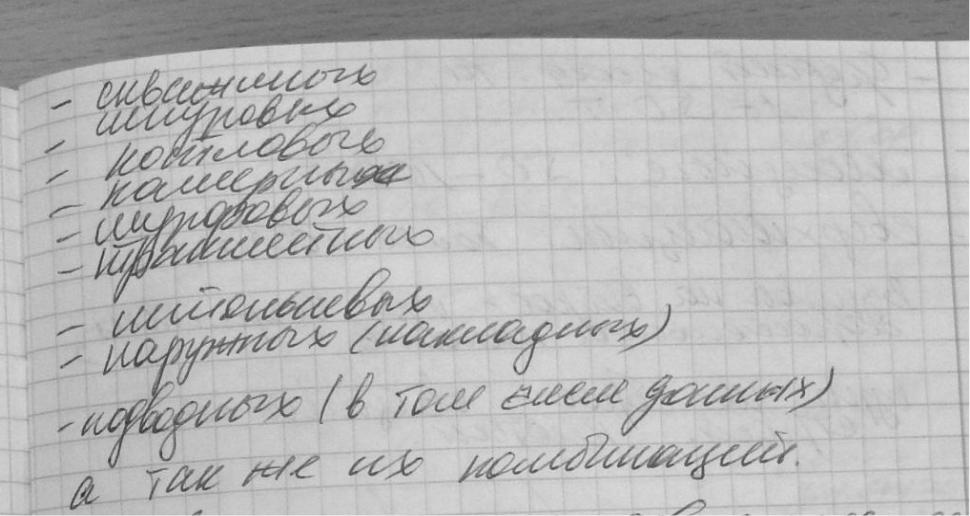 - скважинных
- шпуровых
- котловых
- камерных
- шурфовых
- траншейных
- штольневых
- наружных (накладных)
- подводных (в том числе донных)
а так же их комбинацией.